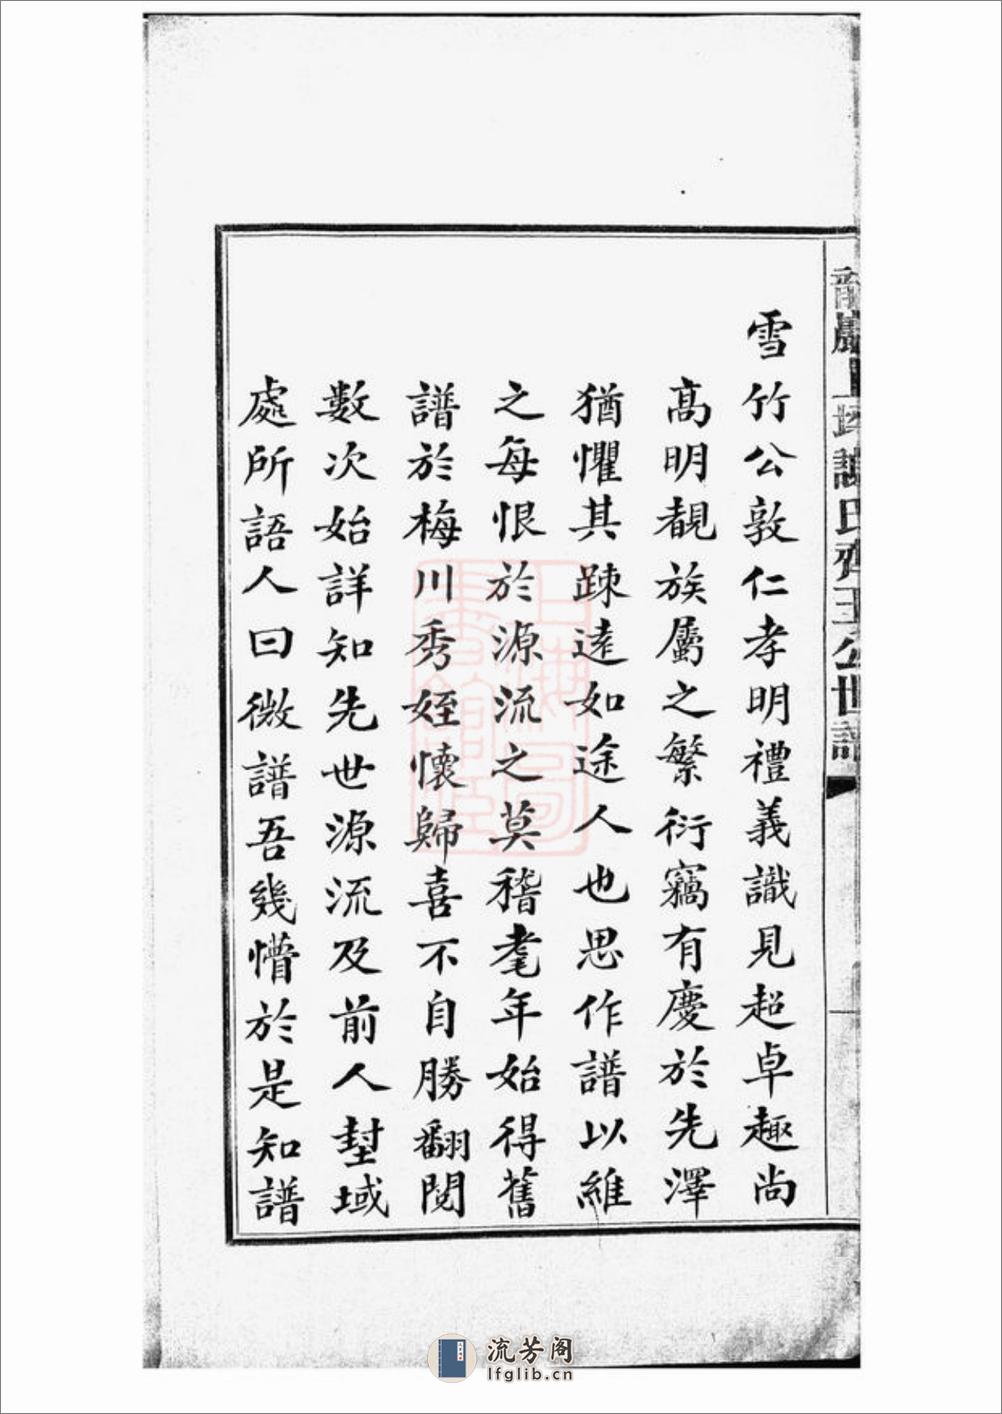 雪竹公敦仁孝明禮義識見超卓趣尚
高明覩族屬之繁衍竊有慶於先澤
猶懼其踈遠如途人也思作譜以維
之每恨於源流之莫稽耄年始得舊
譜於梅川秀姪懷歸喜不自勝翻閱
數次始詳知先世源流及前人封域
處所語人曰微譜吾幾懵於是知譜
流芳阁
lfglib.cn